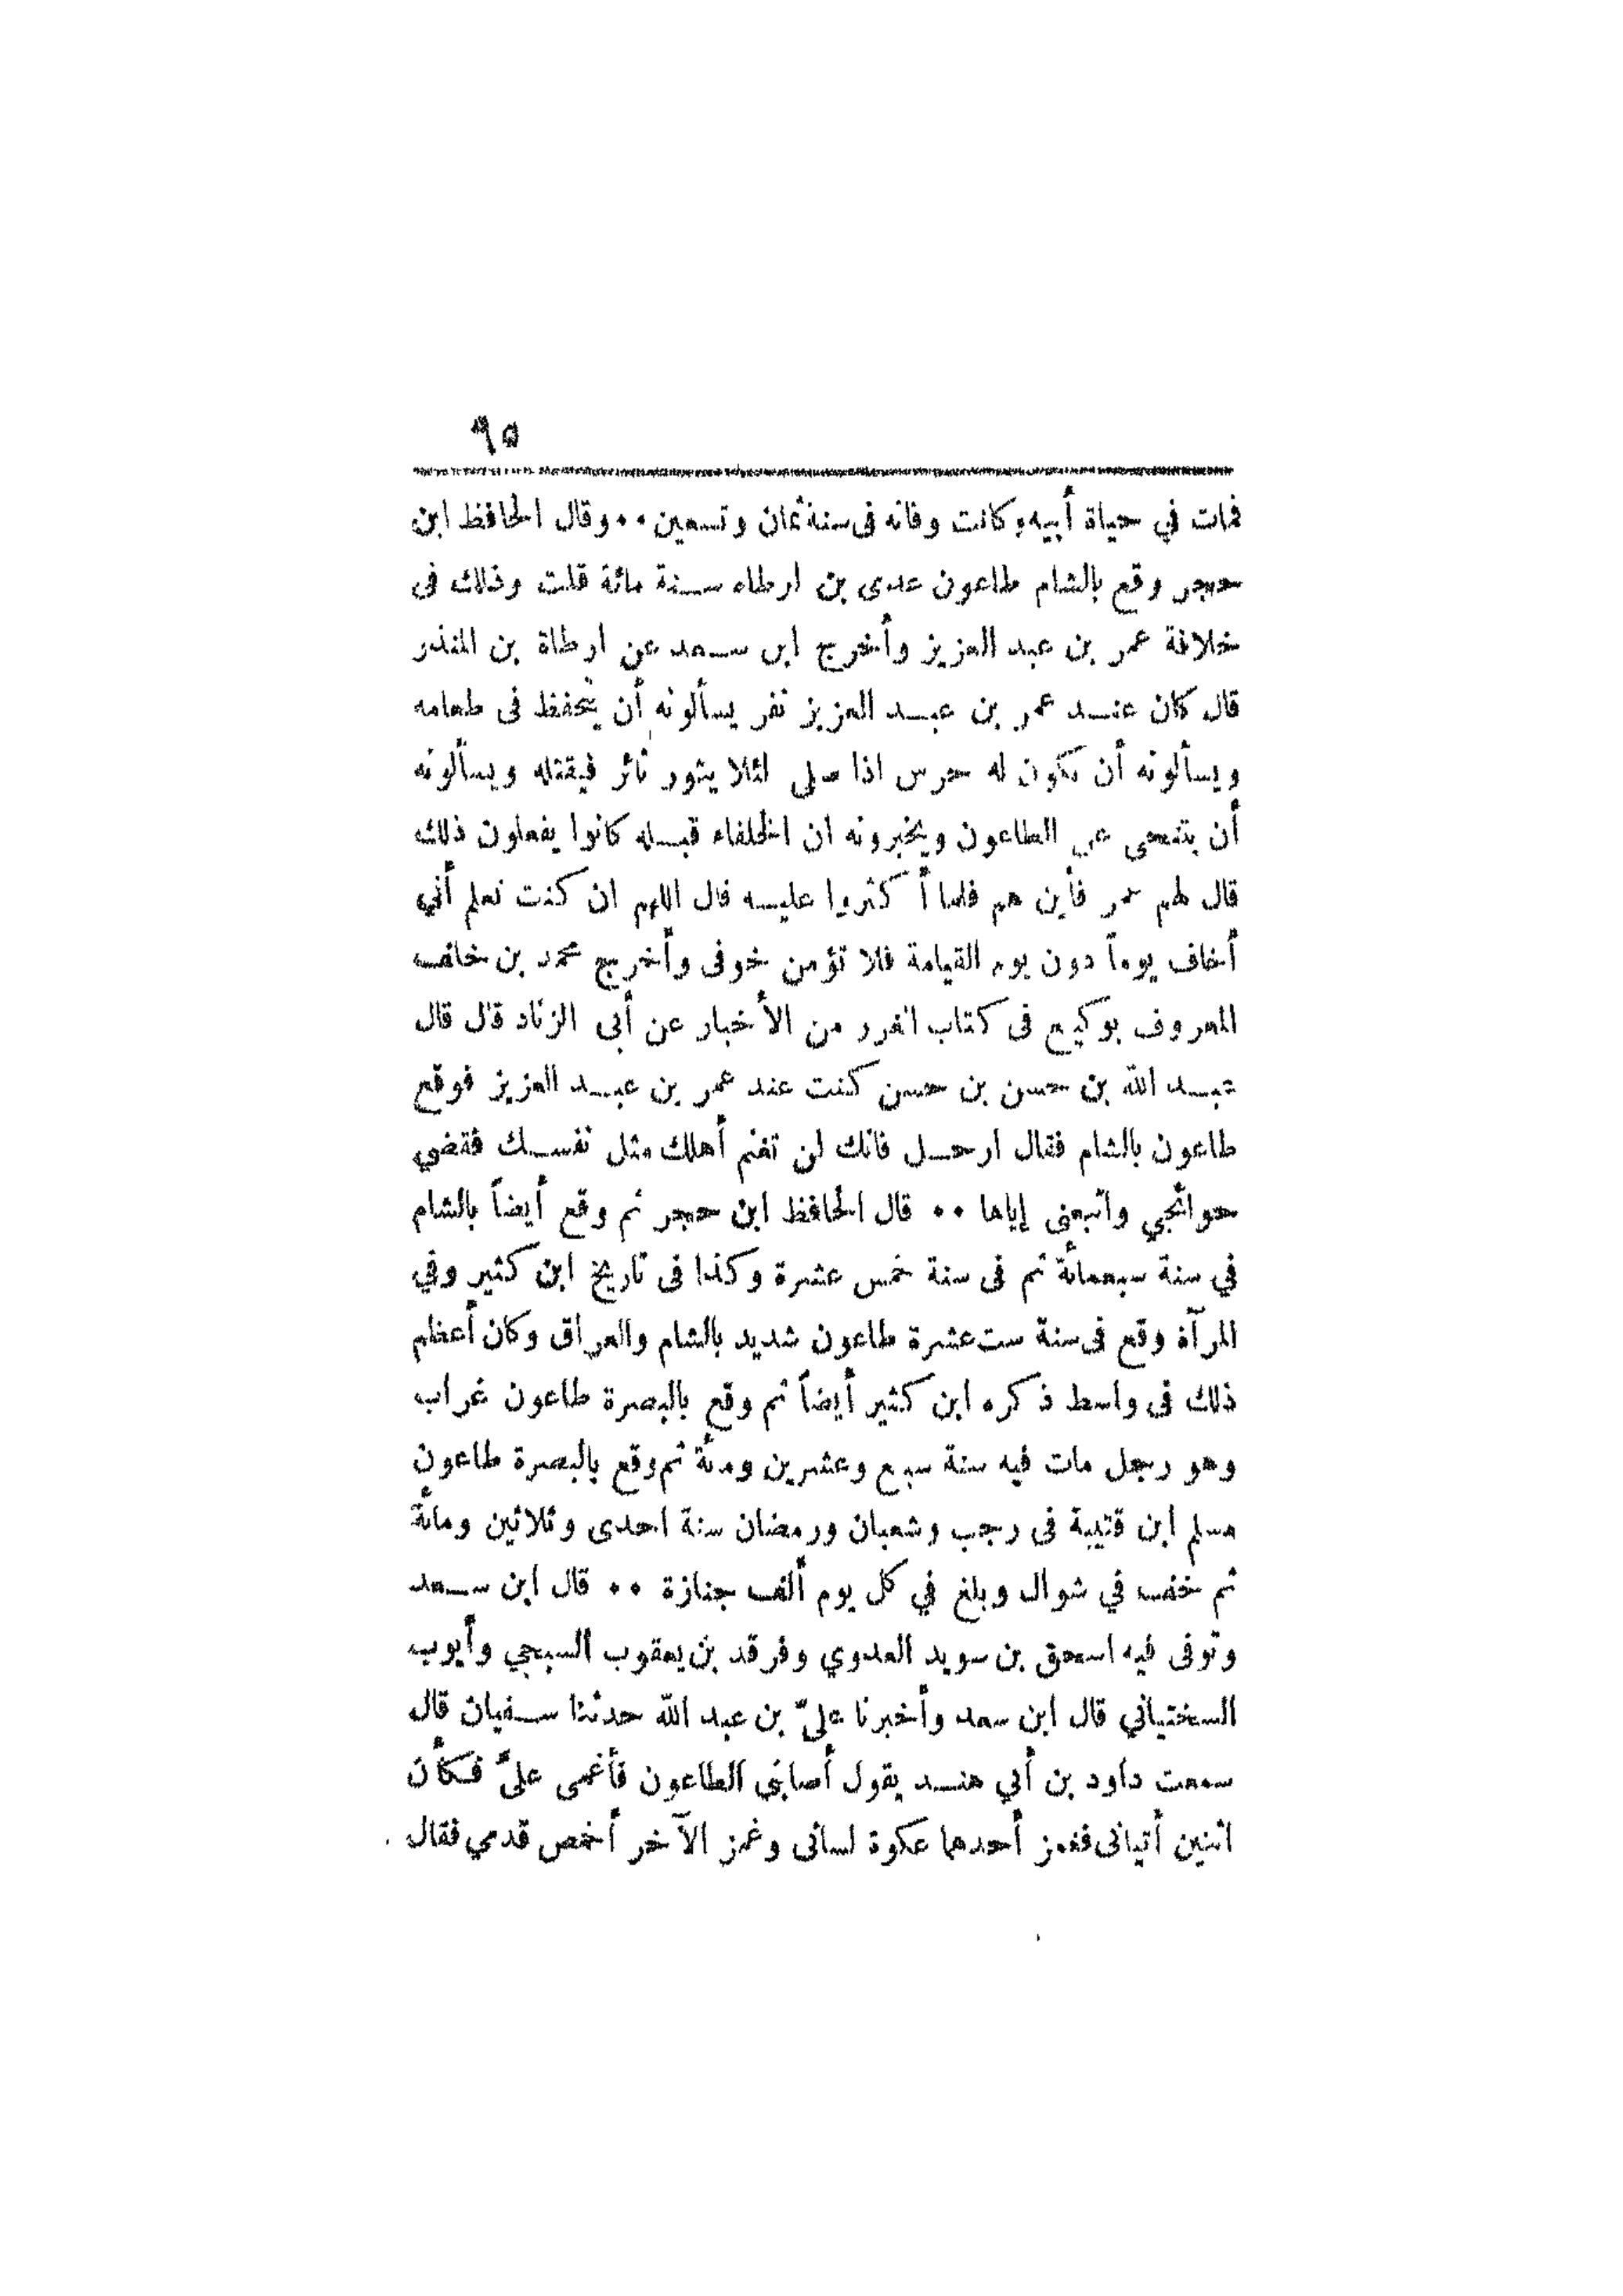 ٩٥
فمات في حياة أبيه وكانت وفاته فى سنة ثمان وتسعين ٠٠ وقال الحافظ ابن
حجر وقع بالشام طاعون عدى بن ارطاه سنة مائة قلت وذلك فى
خلافة عمر بن عبد العزيز وأخرج ابن سعد عن ارطاة بن المنذر
قال كان عند عمر بن عبد العزيز نفر يسألونه أن يتحفظ فى طعامه
ويسألونه أن يكون له حرس اذا صلى لئلا يثور ثائر فيقتله ويسألونه
أن يتنحى عن الطاعون ويخبرونه ان الخلفاء قبله كانوا يفعلون ذلك
قال لهم عمر فأين هم فلما أكثروا عليه قال اللهم ان كنت تعلم أني
أخاف يوماً دون يوم القيامة فلا تؤمن خوفى وأخرج محمد بن خلف
المعروف بوكيع فى كتاب الغرر من الأخبار عن أبى الزناد قال قال
عبد الله بن حسن بن حسن كنت عند عمر بن عبد العزيز فوقع
طاعون بالشام فقال ارحل فانك لن تغنم أهلك مثل نفسك فقضي
حوائجي واتبعنى إياها ٠٠ قال الحافظ ابن حجر ثم وقع أيضاً بالشام
في سنة سبعمائة ثم فى سنة خمس عشرة وكذا فى تاريخ ابن كثير وفي
المرآة وقع فى سنة ست عشرة طاعون شديد بالشام والعراق وكان أعظم
ذلك فى واسط ذكره ابن كثير أيضاً ثم وقع بالبصرة طاعون غراب
وهو رجل مات فيه سنة سبع وعشرين ومئة ثم وقع بالبصرة طاعون
مسلم ابن قتيبة فى رجب وشعبان ورمضان سنة احدى وثلاثين ومائة
ثم خف في شوال وبلغ في كل يوم ألف جنازة ٠٠ قال ابن سعد
وتوفى فيه اسحق بن سويد العدوي وفرقد بن يعقوب السبجي وأيوب
السختياني قال ابن سعد وأخبرنا علىّ بن عبد الله حدثنا سفيان قال
سمعت داود بن أبي هند يقول أصابني الطاعون فأغمى علىَّ فكأن
اثنين أتيانى فغمز أحدهما عكوة لسانى وغمز الآخر أخمص قدمي فقال